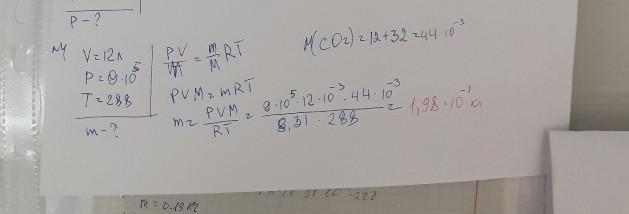 P-?
N4
V=12л
P=9·10⁵
T=288
m-?
PV/m = m/M RT
PVM=mRT
m= PVM/RT = 9·10⁵·12·10⁻³·44·10⁻³/8,31·288 = 1,98·10⁻¹ кг
M(CO₂)=12+32=44·10⁻³
m=0.19кг